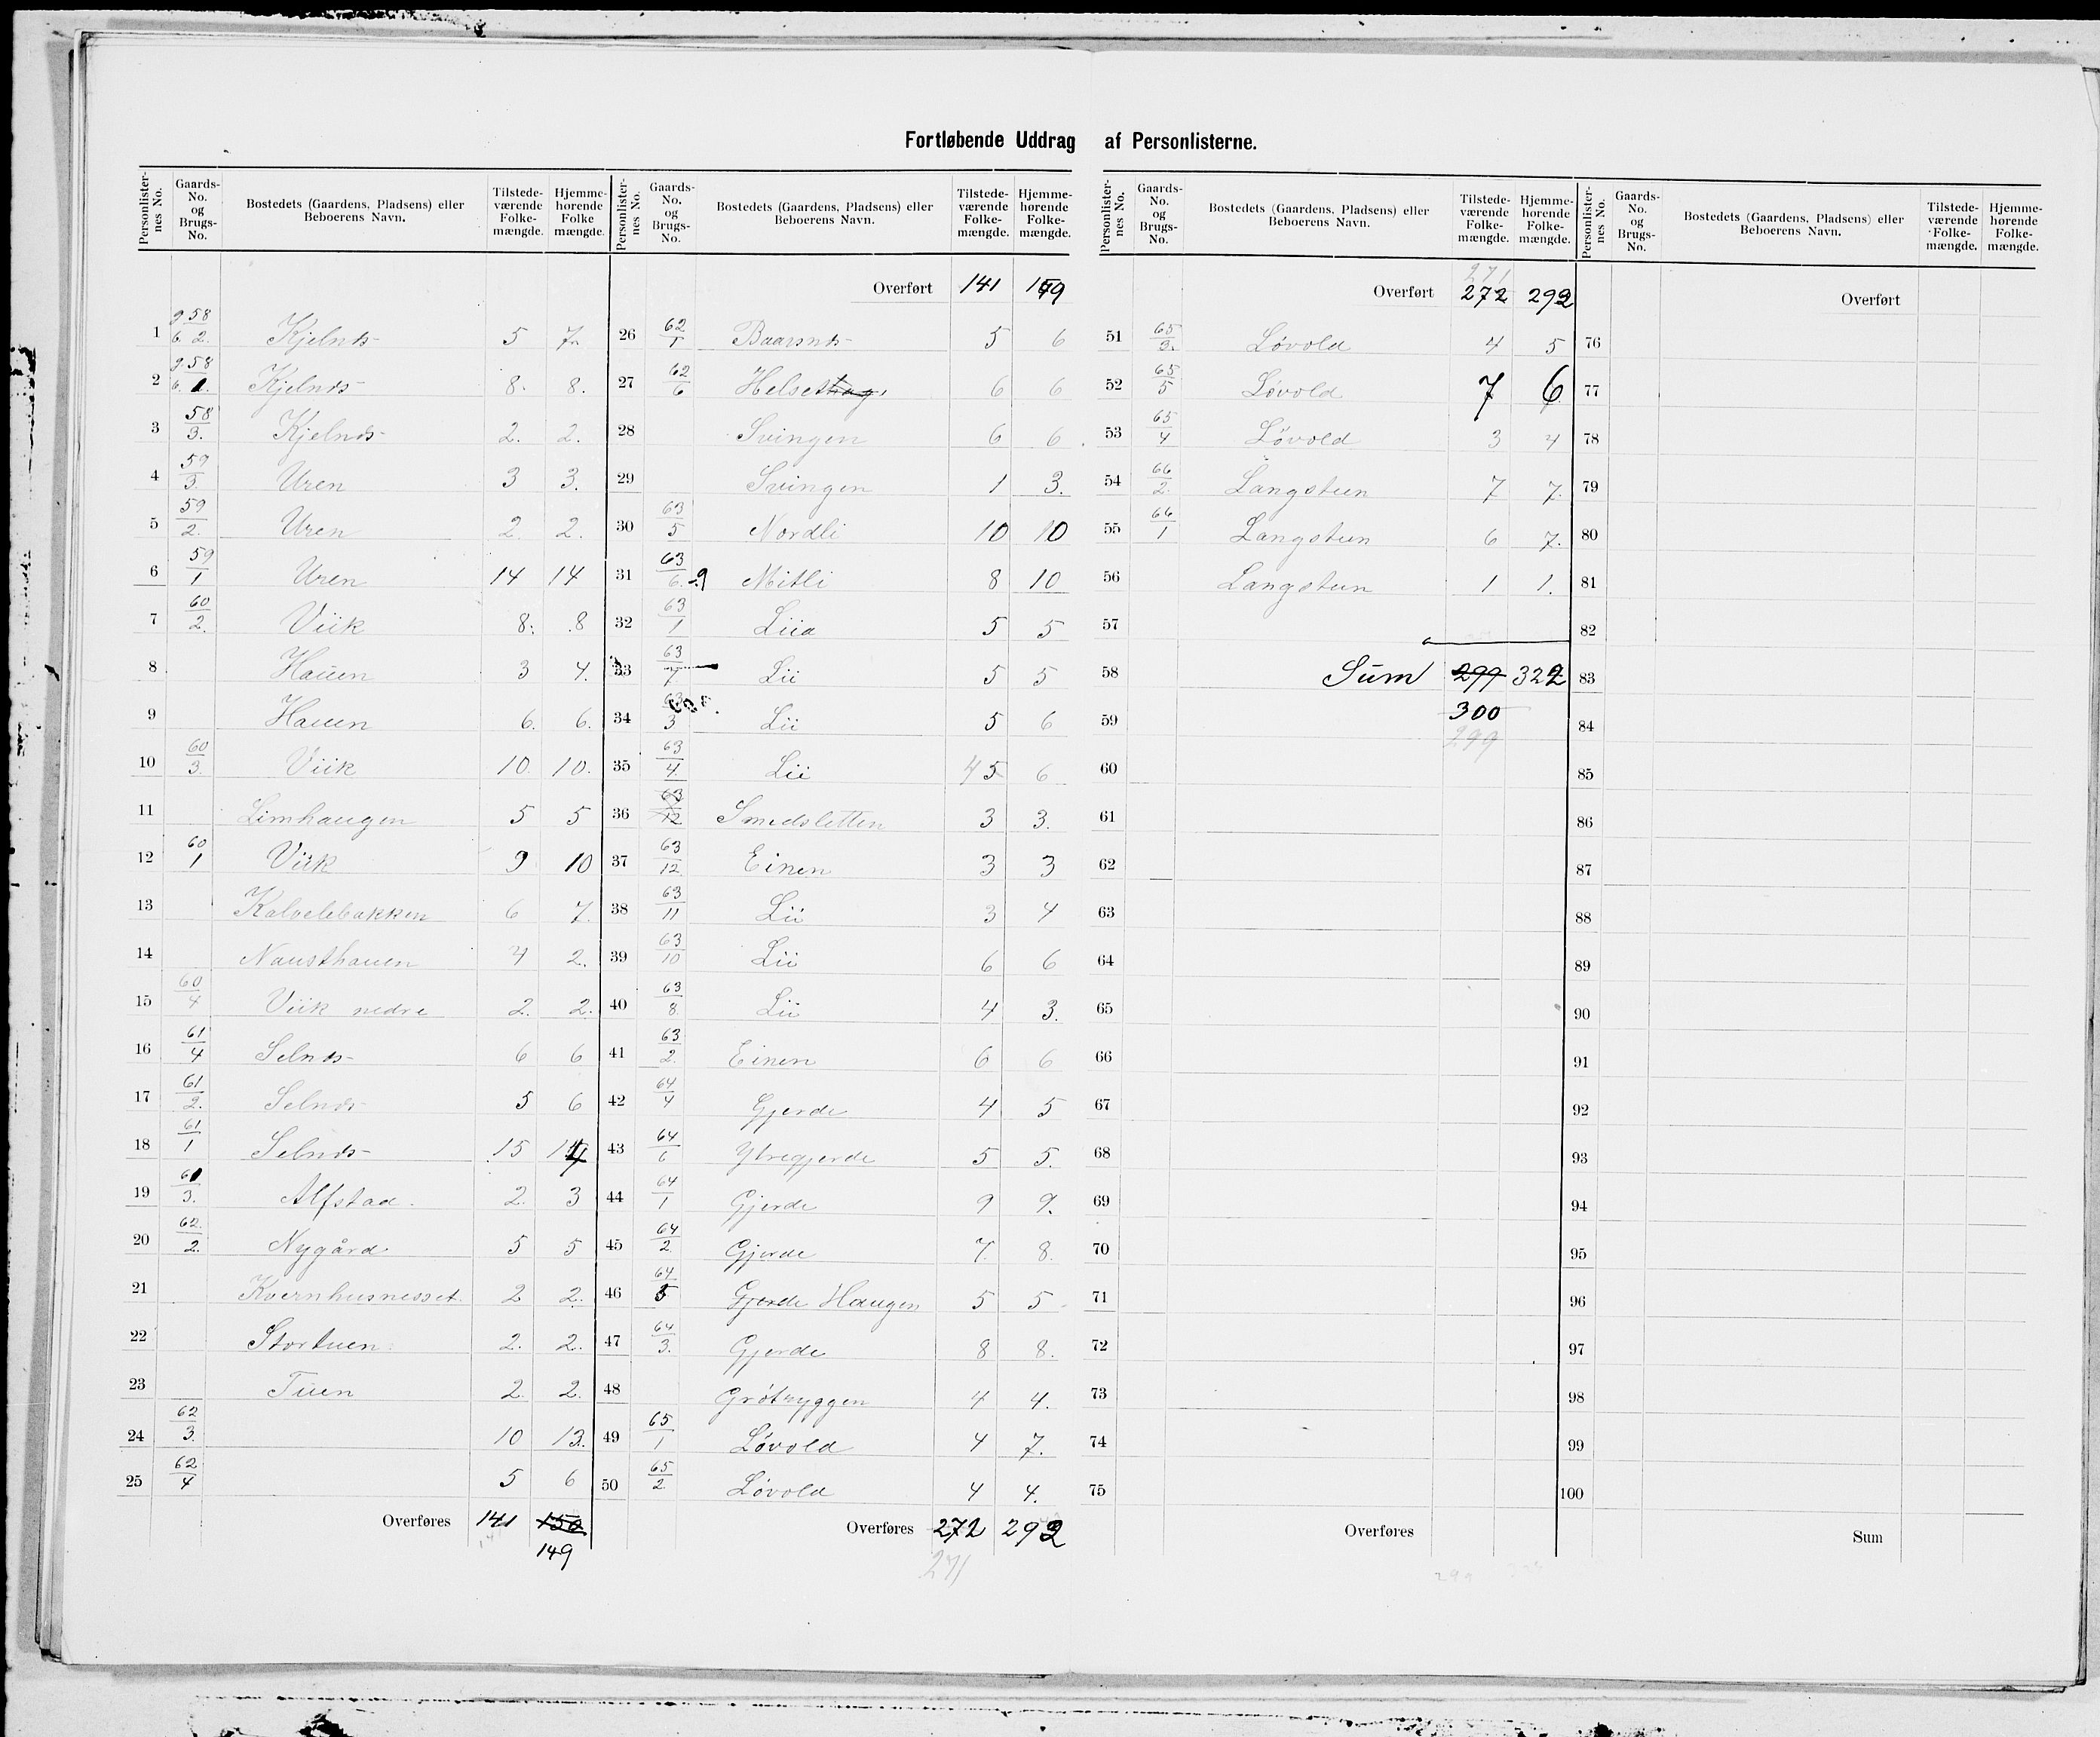 Fortløbende Uddrag af Personlisterne.
Personlisternes No. Gaards-No. og Brugs-No. Bostedets (Gaardens, Pladsens) eller Beboerens Navn. Tilstedeværende Folkemængde. Hjemmehørende Folkemængde.
1 g 58 / b 2. Kjelnds 5 7
2 g. 58 / b. 1. Kjelnds 8. 8.
3 58/3. Kjelnds 2. 2.
4 59/3. Uren 3 3.
5 59/2. Uren 2. 2.
6 59/1 Uren 14 14
7 60/2. Viik 8. 8
8 Hauen 3 4.
9 Hauen 6. 6.
10 60/3. Viik 10. 10.
11 Limhaugen 5 5
12 60/1 Viik 9 10
13 Kalvelebakken 6 7
14 Nausthauen 4 2.
15 60/4 Viik nedre 2. 2.
16 61/4 Selnds 6 6
17 61/2. Selnds 5 6
18 61/1 Selnds 15 14
19 61/3. Alfstad. 2. 3
20 62/2. Nygård 5 5
21 Kvernhusnesset. 2 2.
22 Stortuen 2. 2.
23 Tuen 2. 2.
24 62/3. 10 13.
25 62/4 5 6
Overføres 141 150
149
Personlisternes No. Gaards-No. og Brugs-No. Bostedets (Gaardens, Pladsens) eller Beboerens Navn. Tilstedeværende Folkemængde. Hjemmehørende Folkemængde.
Overført 141 149
26 62/1 Baarsnds 5 6
27 62/6 Helsethag 6 6
28 Svingen 6 6
29 Svingen 1 3.
30 63/5 Nordli 10 10
31 63/6.9 Mitli 8 10
32 63/1 Liia 5 5
33 63/7 Lii 5 5
34 63/3 Lii 5 6
35 63/4. Lii 4 5 6
36 63/12 Smedsletten 3 3.
37 63/12. Einen 3 3
38 63/11 Lii 3 4
39 63/10 Lii 6 6
40 63/8. Lii 4 3.
41 63/2. Einen 6 6
42 64/4 Gjerde 4 5
43 64/6 Ytregjerde 5 5.
44 64/1 Gjerde 9 9.
45 64/2. Gjerde 7. 8.
46 64/5 Gjerde Haugen 5 5
47 64/3. Gjerde 8 8.
48 Grötryggen 4 4.
49 65/1 Løvold 4 7.
50 65/2 Løvold 4 4.
Overføres 272 292
271
Personlisternes No. Gaards-No. og Brugs-No. Bostedets (Gaardens, Pladsens) eller Beboerens Navn. Tilstedeværende Folkemængde. Hjemmehørende Folkemængde.
271
Overført 272 292
51 65/3. Løvold 4 5
52 65/5 Løvold 7 6
53 65/4 Løvold 3 4
54 66/2. Langstun 7 7.
55 66/1 Langstun 6 7.
56 Langstun 1 1.
57
58 Sum 299 322
59 300
299
60
61
62
63
64
65
66
67
68
69
70
71
72
73
74
75
Overføres
Personlisternes No. Gaards-No. og Brugs-No. Bostedets (Gaardens, Pladsens) eller Beboerens Navn. Tilstedeværende Folkemængde. Hjemmehørende Folkemængde.
Overført
76
77
78
79
80
81
82
83
84
85
86
87
88
89
90
91
92
93
94
95
96
97
98
99
100
Sum